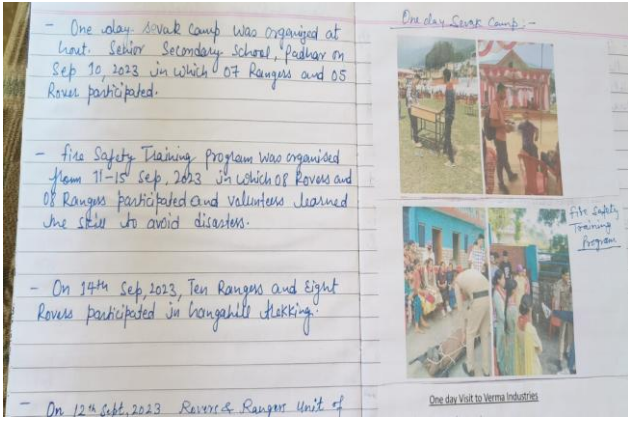 - One day sevak camp was organized at
Govt. Senior Secondary School, Padhar on
Sep 10, 2023 in which 07 Rangers and 05
Rover participated.
- Fire Safety Training Program was organised
from 11-15 Sep, 2023 in which 08 Rovers and
08 Rangers participated and valenteers learned
the skill to avoid disasters.
- On 14th Sep, 2023, Ten Rangers and Eight
Rovers participated in trekking.
- On 12th Sept, 2023 Rovers & Rangers Unit of
One day Sevak Camp :-
Fire Safety
Training
Program
One day Visit to Verma Industries